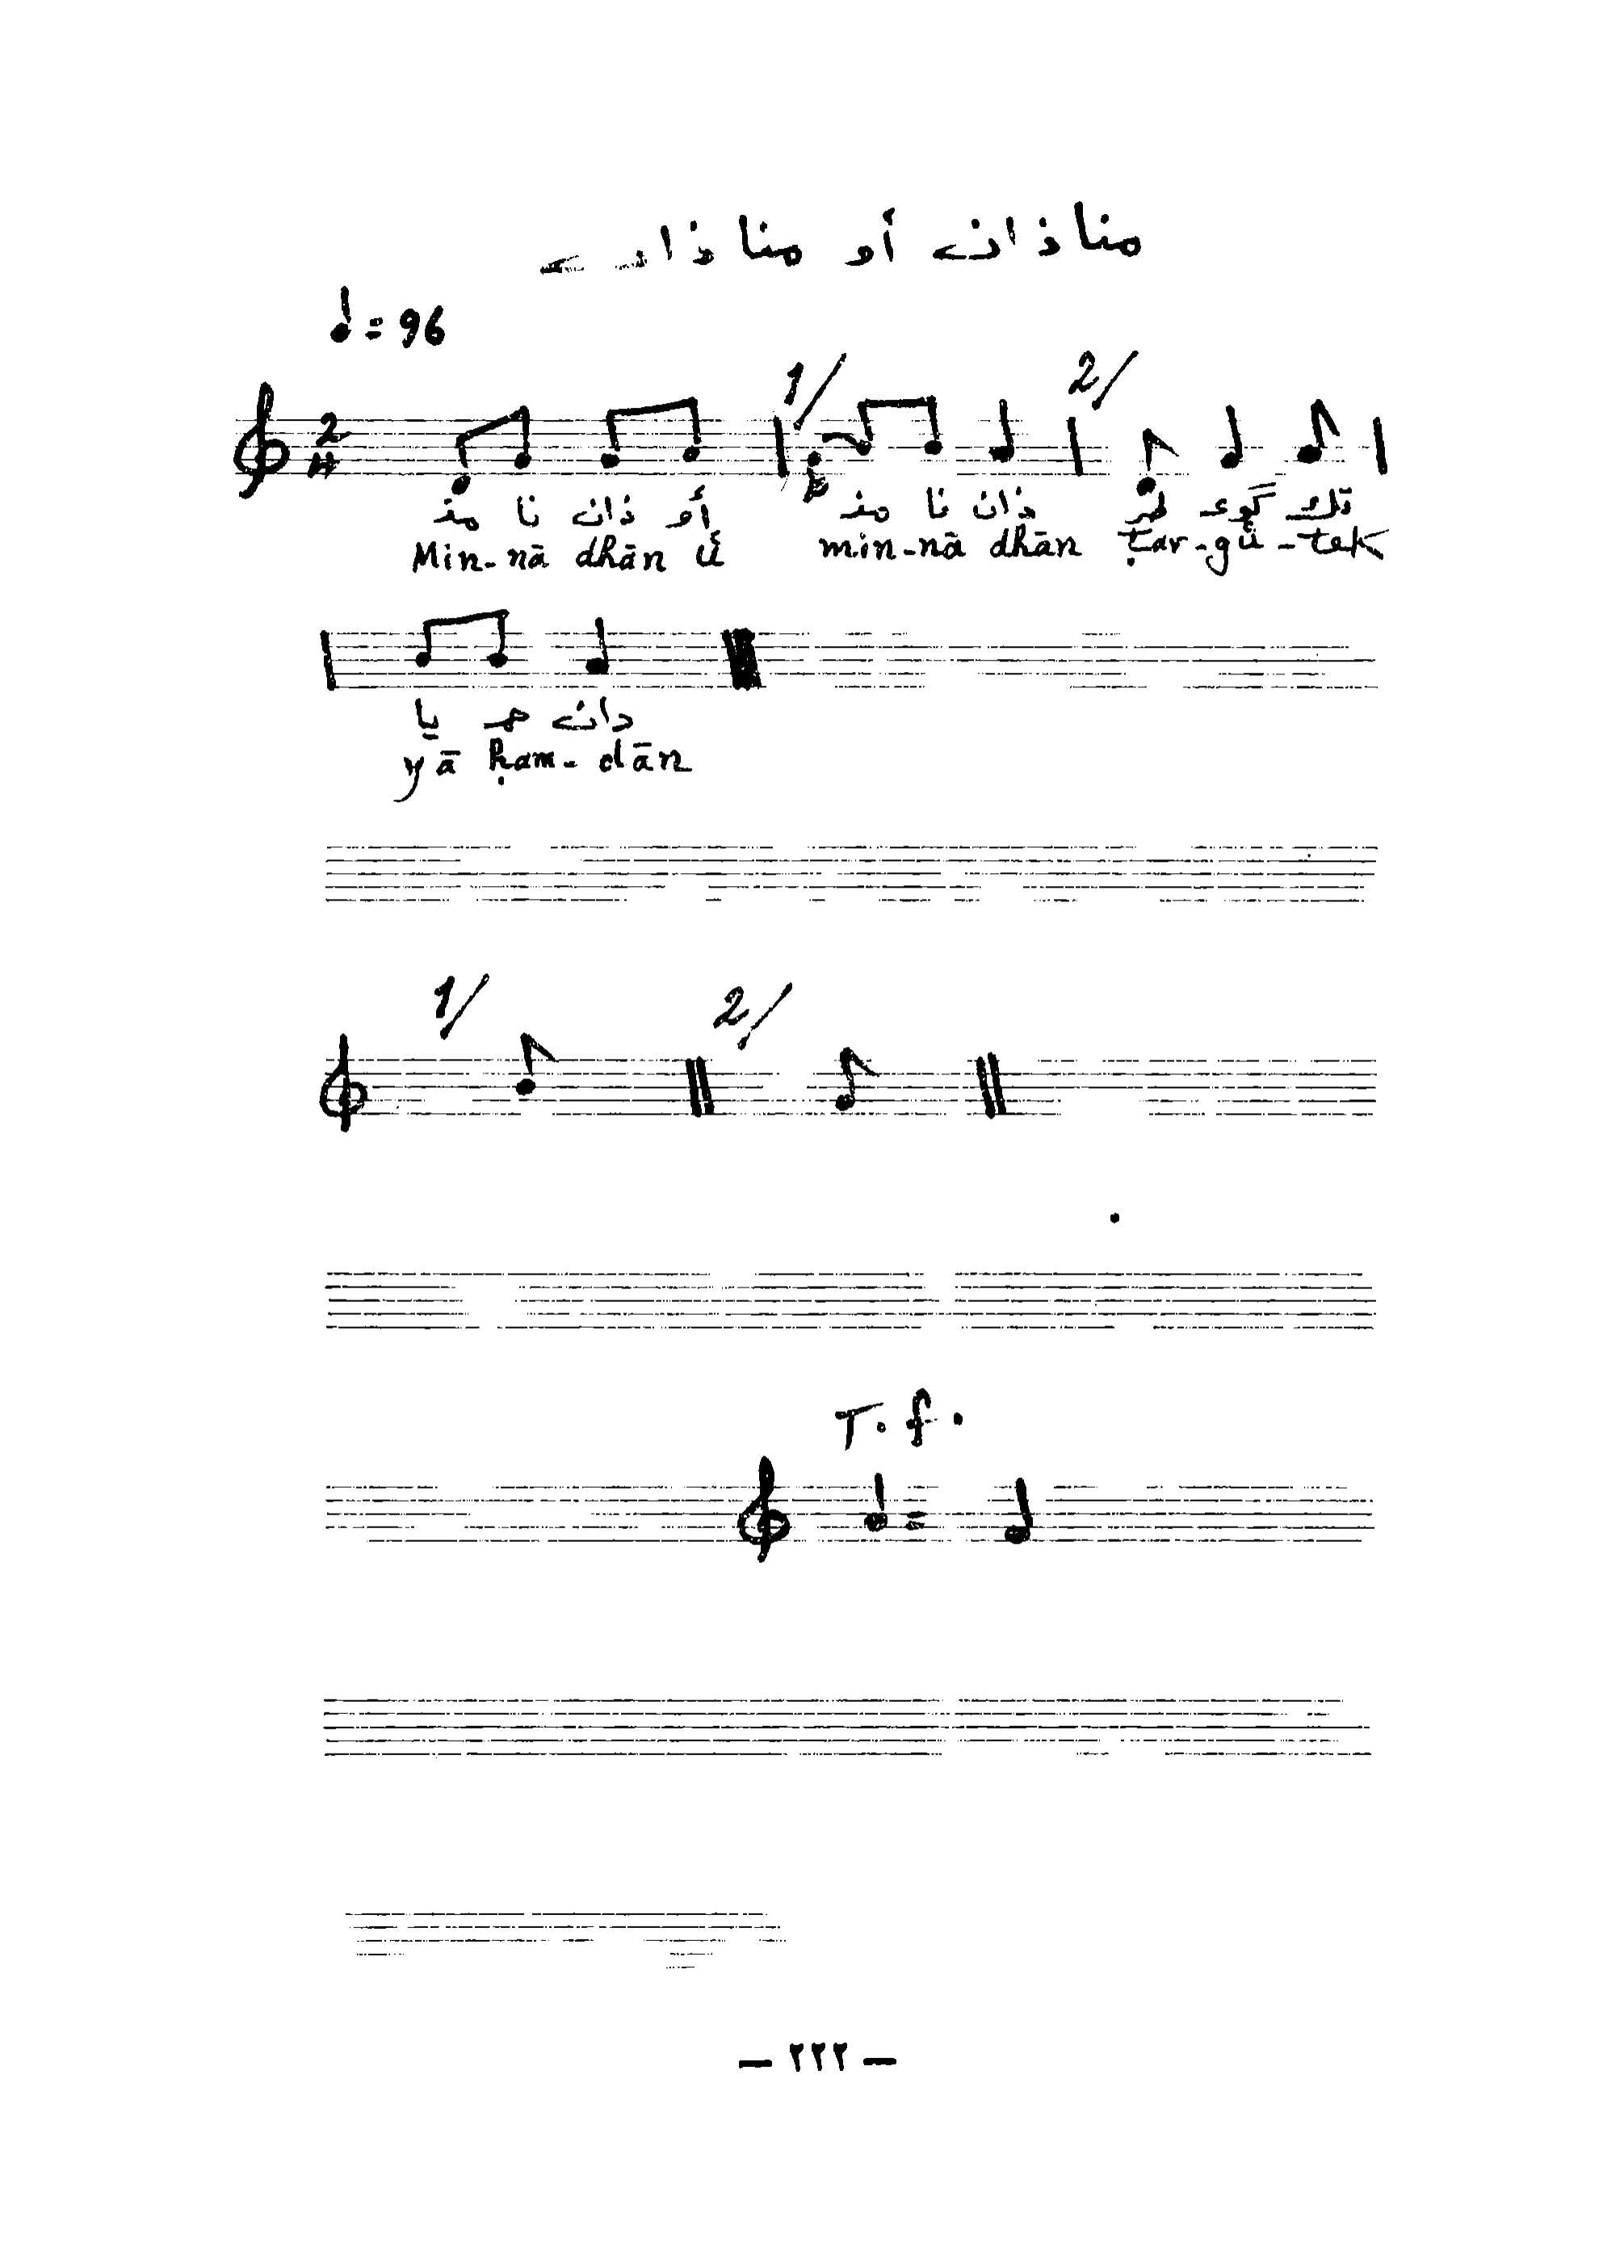 مناذان أو مناذان
= 96
1/ 2/
2
4
مذ نا ذان أو مذ نا ذان طر گوء تك
Min-nā dhān ū min-nā dhān ṭar-gū-tek
يا حمـ دان
yā ḥam-dān
1/ 2/
T. f.
=
— ٢٢٢ —